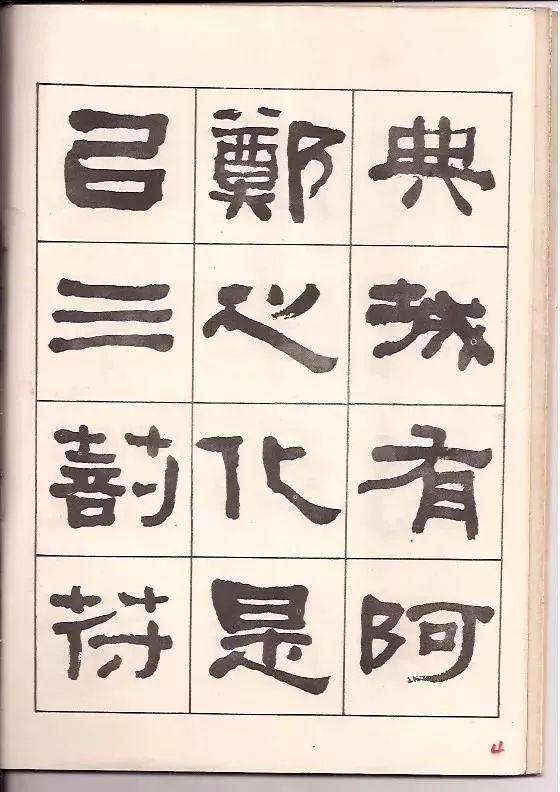 典城有阿
鄭之化是
㠯三剖符
4